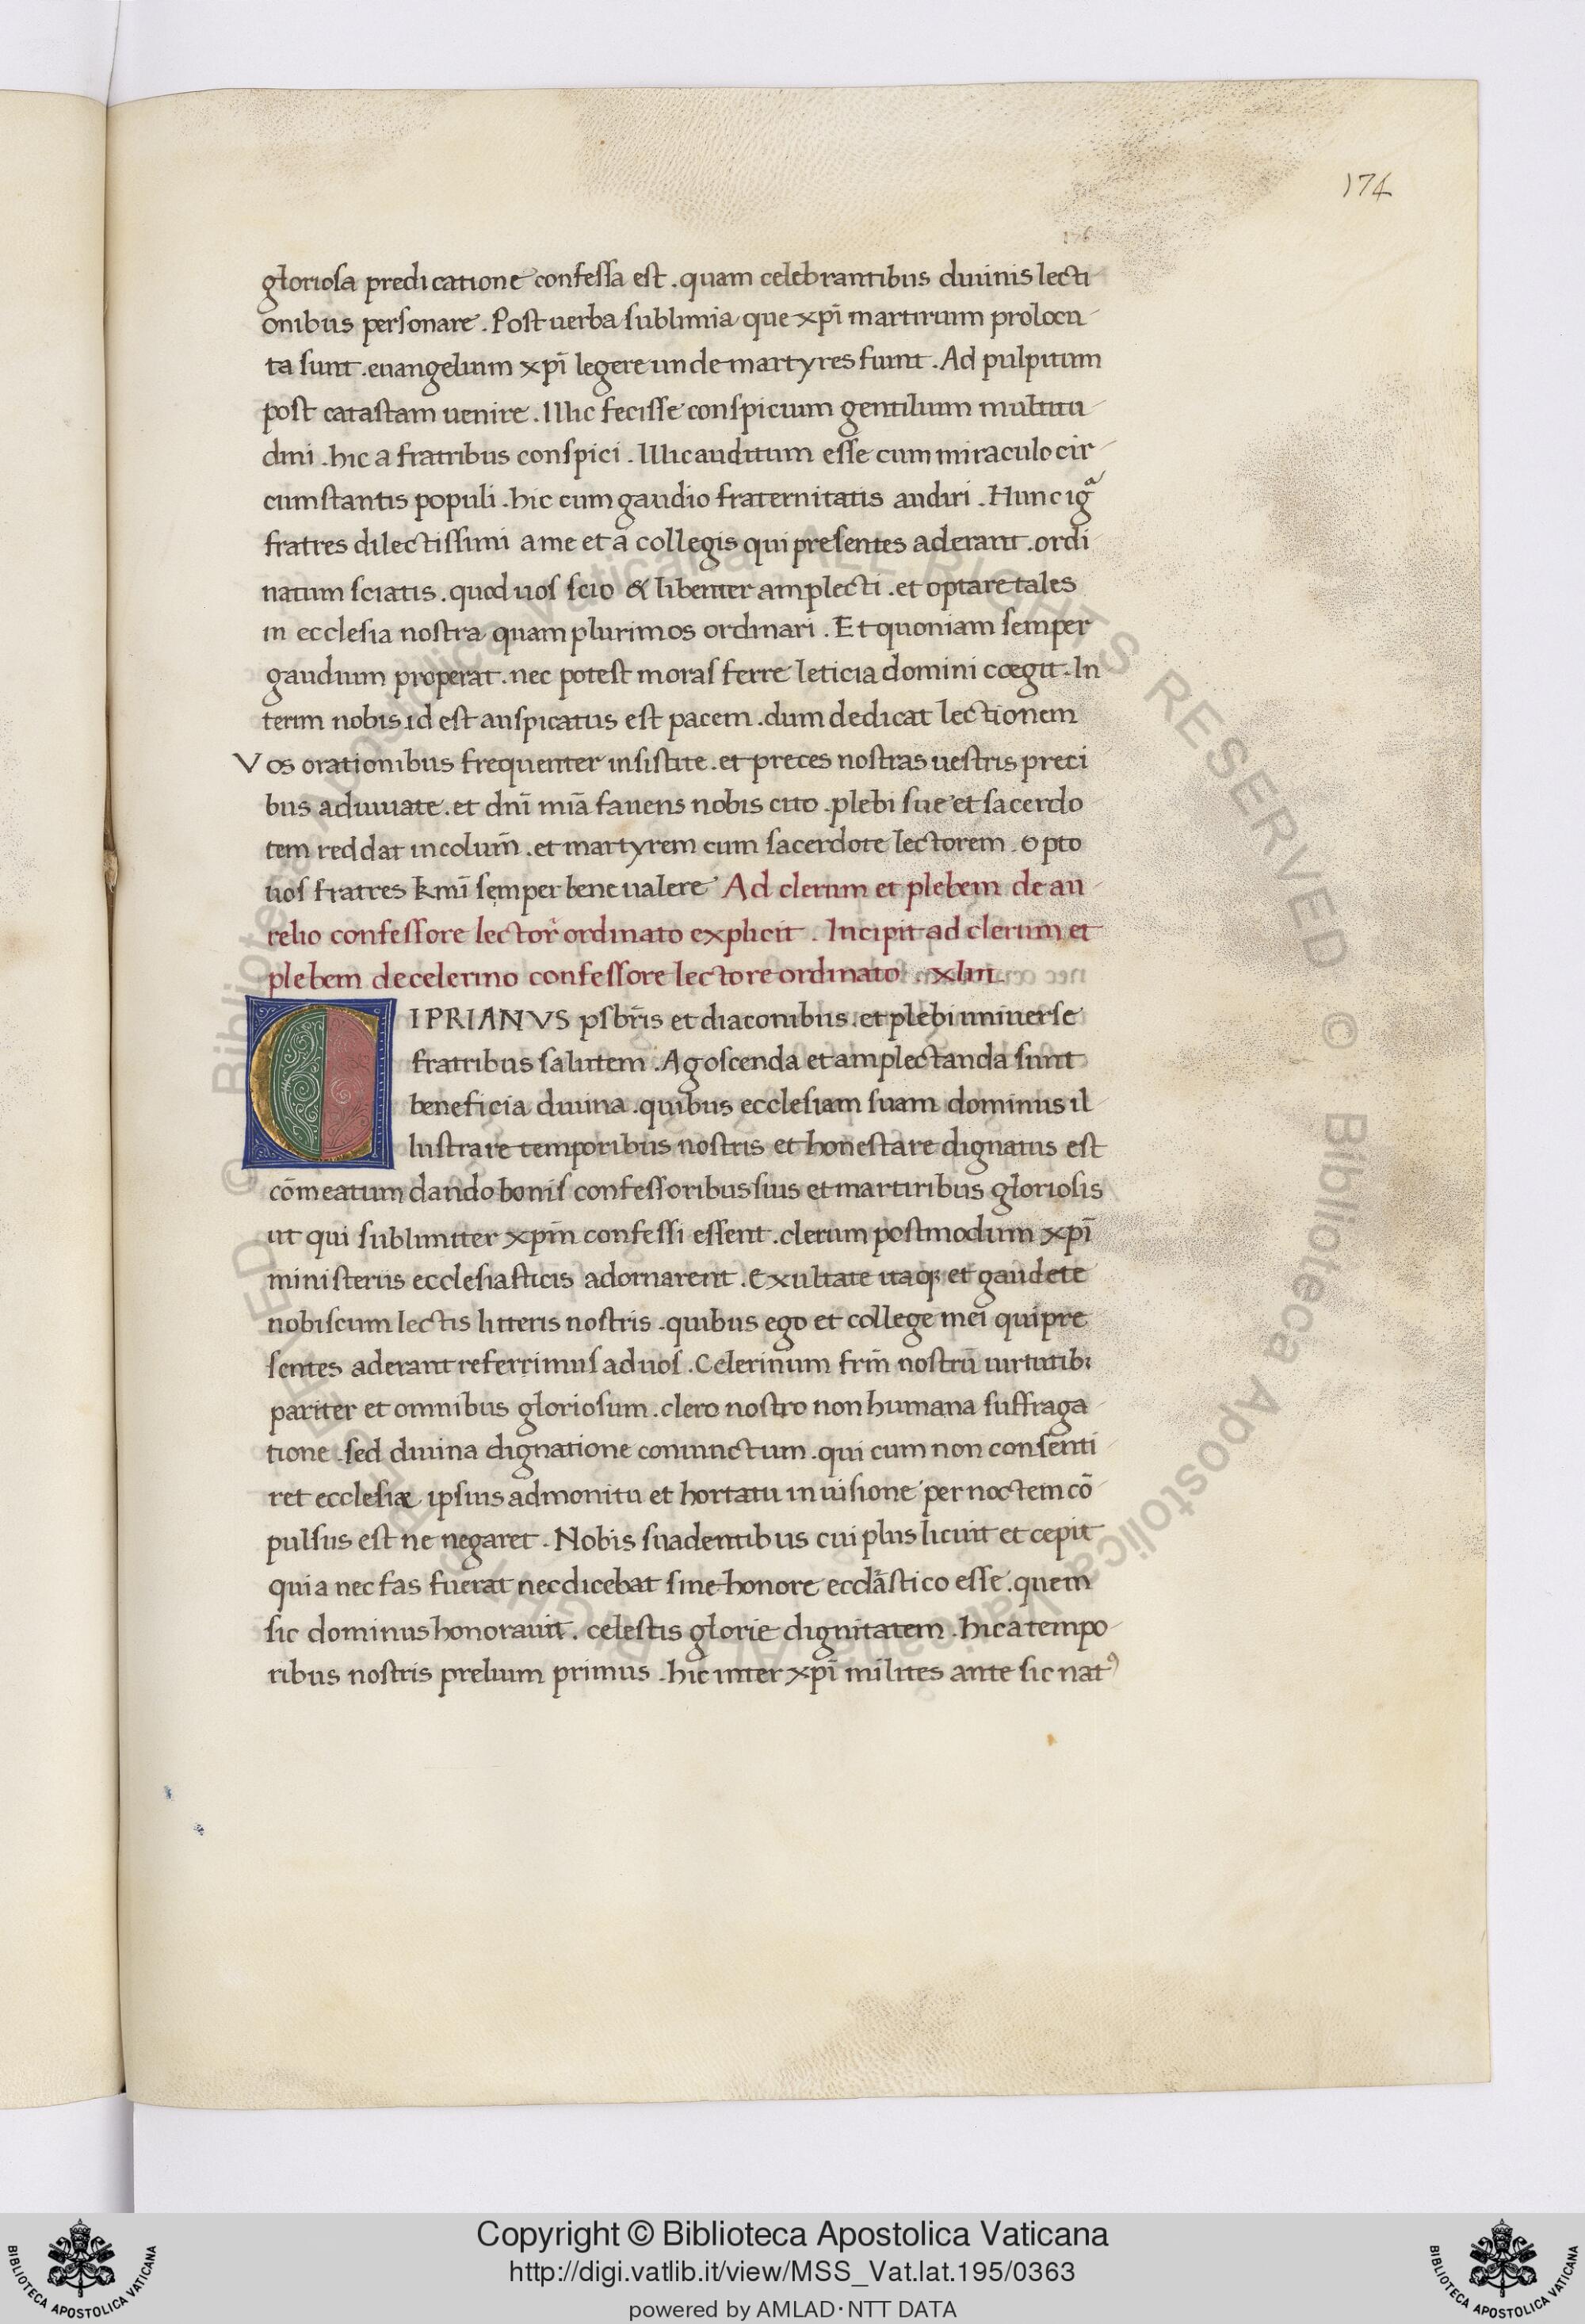 174
gloriosa predicatione confessa est . quam celebrantibus diuinis lecti
onibus personare . Post uerba sublimia que xp̄i martirum prolocu
ta sunt . euangelium xp̄i legere unde martyres fiunt . Ad pulpitum
post catastam uenire . Illic fecisse conspicuum gentilium multitu
dini . hic a fratribus conspici . Illic auditum esse cum miraculo cir
cumstantis populi . hic cum gaudio fraternitatis audiri . Hunc igᵃ
fratres dilectissimi a me et a collegis qui presentes aderant . ordi
natum sciatis . quod uos scio & libenter amplecti . et optare tales
in ecclesia nostra quam plurimos ordinari . Et quoniam semper
gaudium properat . nec potest moras ferre leticia domini coegit . In
terim nobis id est auspicatus est pacem . dum dedicat lectionem
Vos orationibus frequenter insistite . et preces nostras uestris preci
bus adiuuate . et dn̄i mīa fauens nobis cito . plebi sue et sacerdo
tem reddat incolum̄ . et martyrem cum sacerdote lectorem . Opto
uos fratres kmī semper bene ualere Ad clerum et plebem de au
relio confessore lector̄ ordinato explicit . Incipit ad clerum et
plebem de celerino confessore lectore ordinato . xliii.
CIPRIANVS psbr̄is et diaconibus . et plebi uniuerse
fratribus salutem . Agoscenda et amplectanda sunt
beneficia diuina . quibus ecclesiam suam dominus il
lustrare temporibus nostris et honestare dignatus est
cōmeatum dando bonis confessoribus suis et martiribus gloriosis
ut qui sublimiter xpm̄ confessi essent . clerum postmodum xp̄i
ministeriis ecclesiasticis adornarent . Exultate itaqꝫ et gaudete
nobiscum lectis litteris nostris . quibus ego et college mei qui pre
sentes aderant referrimus ad uos . Celerinum frm̄ nostrū uirtutibꝫ
pariter et omnibus gloriosum . clero nostro non humana suffraga
tione . sed diuina dignatione coniunctum . qui cum non consenti
ret ecclesiæ ipsius admonitu et hortatu in uisione per noctem cō
pulsus est ne negaret . Nobis suadentibus cui plus licuit et cepit
quia nec fas fuerat nec dicebat sine honore ecclāstico esse . quem
sic dominus honorauit . celestis glorie dignitatem . hic a tempo
ribus nostris prelium primus . hic inter xp̄i milites ante sic natꝰ
© Biblioteca Apostolica Vaticana ALL RIGHTS RESERVED © Biblioteca Apostolica Vaticana ALL RIGHTS RESERVED
Copyright © Biblioteca Apostolica Vaticana
http://digi.vatlib.it/view/MSS_Vat.lat.195/0363
powered by AMLAD·NTT DATA
BIBLIOTECA APOSTOLICA VATICANA
BIBLIOTECA APOSTOLICA VATICANA